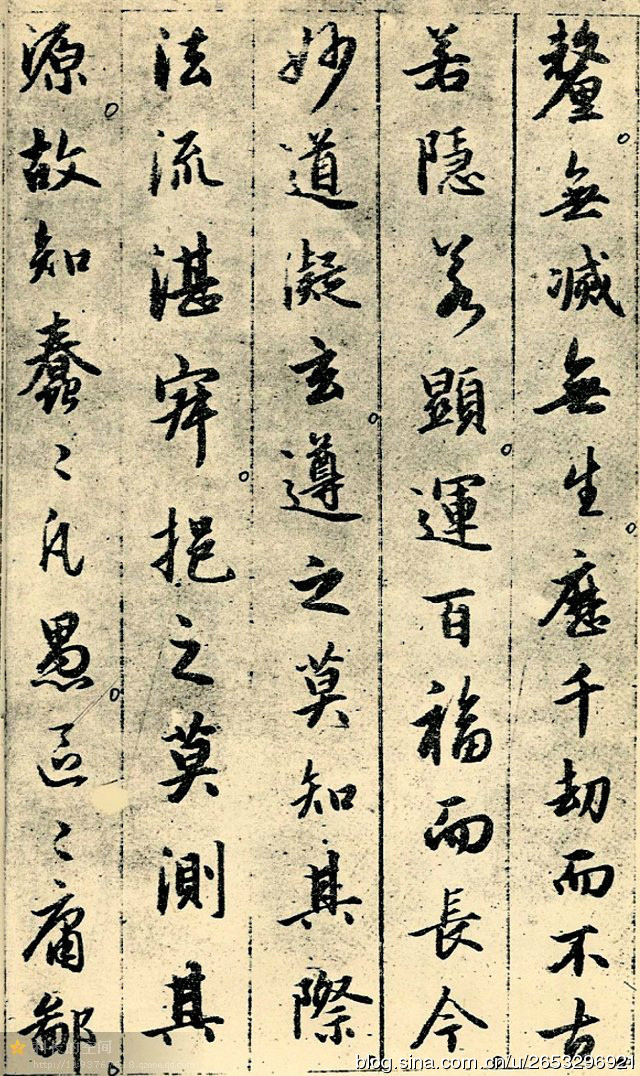 釐無滅無生歷千劫而不古
若隱若顯運百福而長今
妙道凝玄遵之莫知其際
法流湛寂挹之莫測其
源故知蠢〻凡愚區〻庸鄙
blog.sina.com.cn/u/2653296921